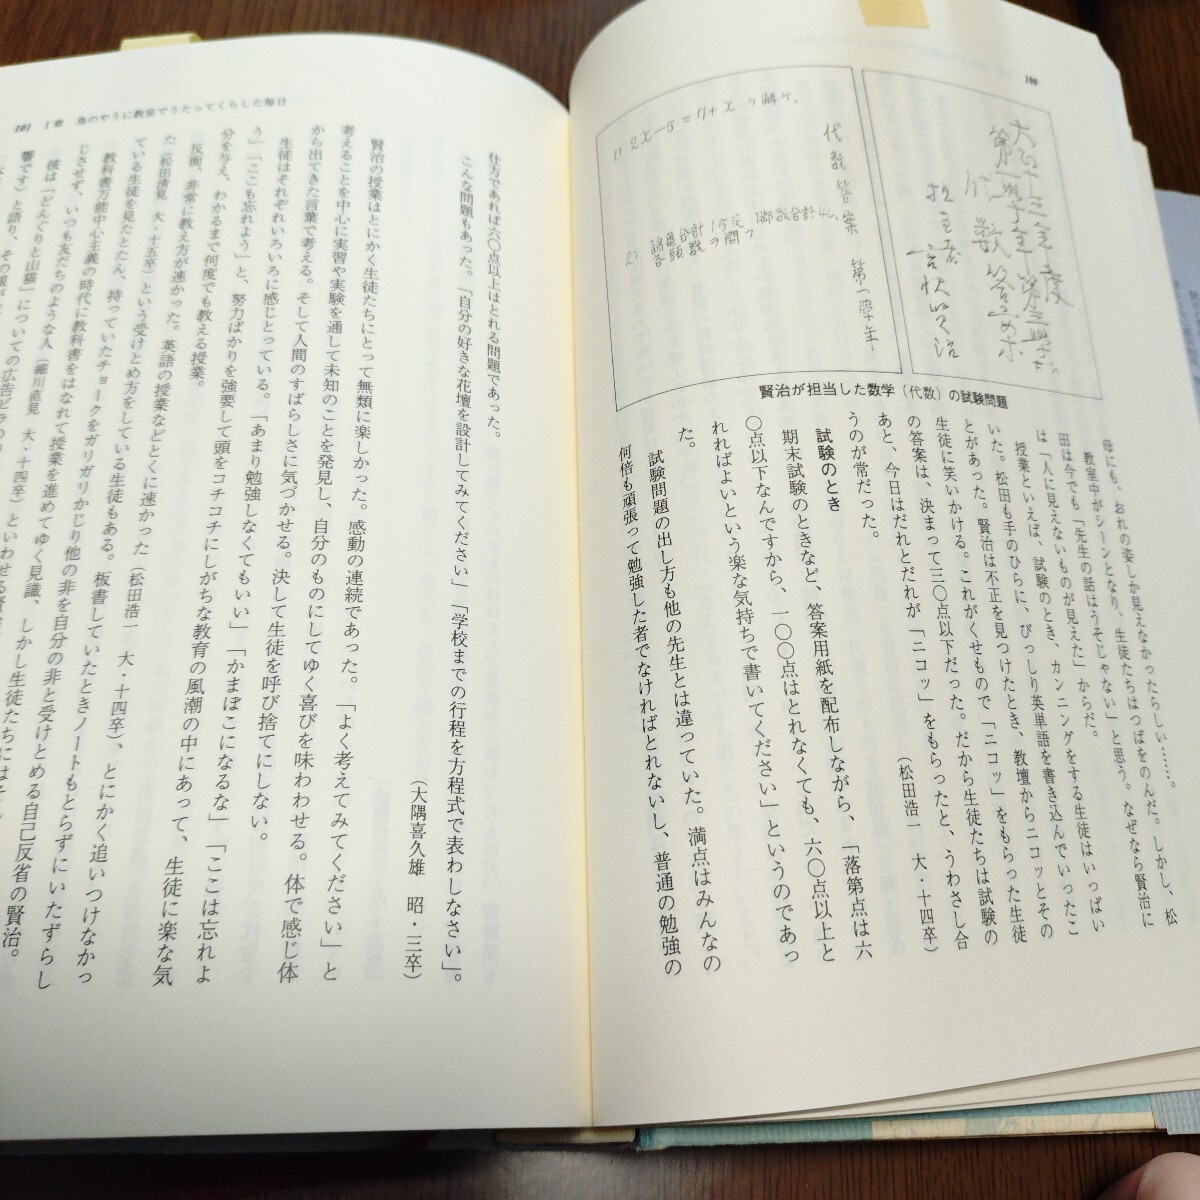 100
大正十三年度
第一學年第三學期
代數答案
担任者
宮沢賢治
代數答案 第一學年
1) 2x−5=7+x ヲ解ケ.
賢治が担当した数学（代数）の試験問題
母にも、おれの姿しか見えなかったらしい……。
教室中がシーンとなり、生徒たちはつばをのんだ。しかし、松
田は今でも「先生の話はうそじゃない」と思う。なぜなら賢治に
は「人に見えないものが見えた」からだ。
授業といえば、試験のとき、カンニングをする生徒はいっぱい
いた。松田も手のひらに、びっしり英単語を書き込んでいったこ
とがあった。賢治は不正を見つけたとき、教壇からニコッとその
生徒に笑いかける。これがくせもので「ニコッ」をもらった生徒
の答案は、決まって三〇点以下だった。だから生徒たちは試験の
あと、今日はだれとだれが「ニコッ」をもらったと、うわさし合
うのが常だった。
（松田浩一 大・十四卒）
試験のとき
期末試験のときなど、答案用紙を配布しながら、「落第点は六
〇点以下なんですから、一〇〇点はとれなくても、六〇点以上と
れればよいという楽な気持ちで書いてください」というのであっ
た。
試験問題の出し方も他の先生とは違っていた。満点はみんなの
何倍も頑張って勉強した者でなければとれないし、普通の勉強の
101 Ⅰ章 鳥のやうに教室でうたってくらした毎日
仕方であれば六〇点以上はとれる問題であった。
こんな問題もあった。「自分の好きな花壇を設計してみてください」「学校までの行程を方程式で表わしなさい」。
（大隅喜久雄 昭・三卒）
賢治の授業はとにかく生徒たちにとって無類に楽しかった。感動の連続であった。「よく考えてみてください」と
考えることを中心に実習や実験を通して未知のことを発見し、自分のものにしてゆく喜びを味わわせる。体で感じ体
から出てきた言葉で考える。そして人間のすばらしさに気づかせる。決して生徒を呼び捨てにしない。
生徒はそれぞれいろいろに感じとっている。「あまり勉強しなくてもいい」「かまぼこになるな」「ここは忘れよ
う」「ここも忘れよう」と、努力ばかりを強要して頭をコチコチにしがちな教育の風潮の中にあって、生徒に楽な気
分を与え、わかるまで何度でも教える授業。
反面、非常に教え方が速かった。英語の授業などとくに速かった（松田浩一 大・十四卒）、とにかく追いつけなかっ
た（松田清見 大・十五卒）という受けとめ方をしている生徒もある。板書していたときノートもとらずにいたずらし
ている生徒を見たとたん、持っていたチョークをガリガリかじり他の非を自分の非と受けとめる自己反省の賢治。
教科書万能中心主義の時代に教科書をはなれて授業を進めてゆく見識、しかし生徒たちには
じさせず、いつも友だちのような人（細川直見 大・十四卒）といわせる
彼は「どんぐりと山猫」についての広告ビラの
響です）と語り、その